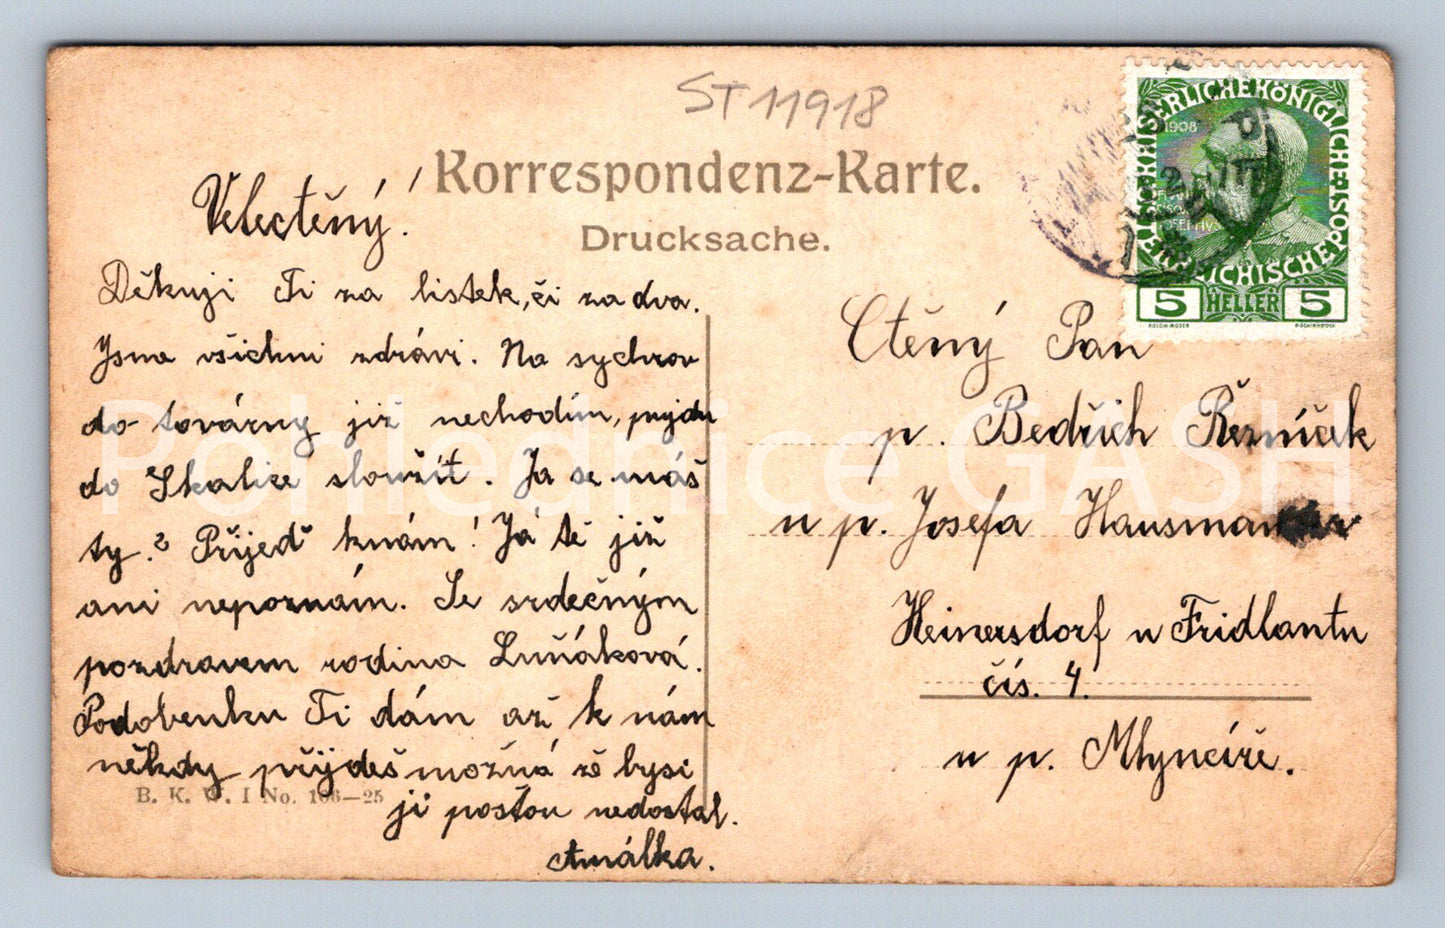 ST 11918
Korrespondenz-Karte.
Drucksache.
Velectěný!
Děkuji Ti za lístek, či za dva.
Jsme všichni zdrávi. Na sychrov
do továrny již nechodím, půjdu
do Skalice sloužit. Ja se máš
ty.? Přijeď knám! Já tě již
ani nepoznám. Se srdečným
pozdravem rodina Luňáková.
Podobenku Ti dám až k nám
někdy přijdeš možná že bysi
ji poštou nedostal.
Amálka.
B. K. W. I No. 106—25
KAISERLICHE KÖNIGLICHE ÖSTERREICHISCHE POST
1908
5 HELLER 5
KOLOM. MOSER
Ctěný Pan
p. Bedřich Řezníček
u p. Josefa Hausman
Heinersdorf u Fridlantu
čís. 4.
u p. Mlynáře.
Pohlednice GASH